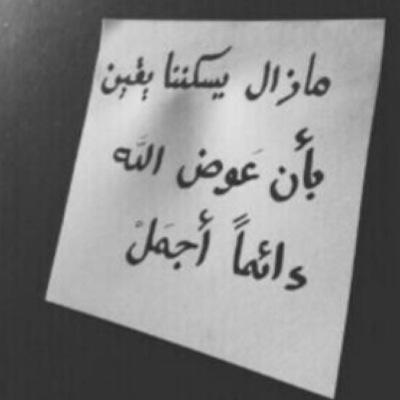 مازال يسكننا يقين
بأن عَوض اللَّه
دائماً أجمَلْ